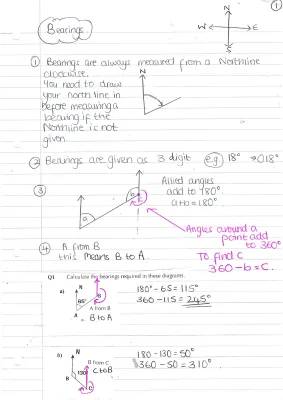 Bearings
1
N
W E
S
① Bearings are always measured from a Northline
clockwise.
You need to draw
your north line in
before measuring a
bearing if the
Northline is not
given
N
② Bearings are given as 3 digit e.g 18° → 018°
③
N
a
a
b
c
Allied angles
add to 180°
a+b=180°
Angles around a
point add
to 360°
To find c
360-b=c.
④ A from B
this means B to A
Q1 Calculate the bearings required in these diagrams.
a)
N
65°
B
A
A from B
= B to A
180°-65=115°
360-115=245°
b)
N
130°
B
C
B from C
C to B
180-130=50°
360-50=310°